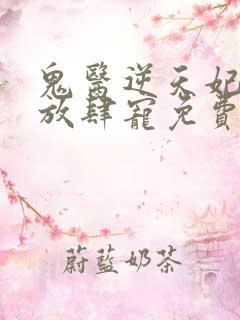 鬼醫逆天妃
放肆寵免費
蔚藍奶茶